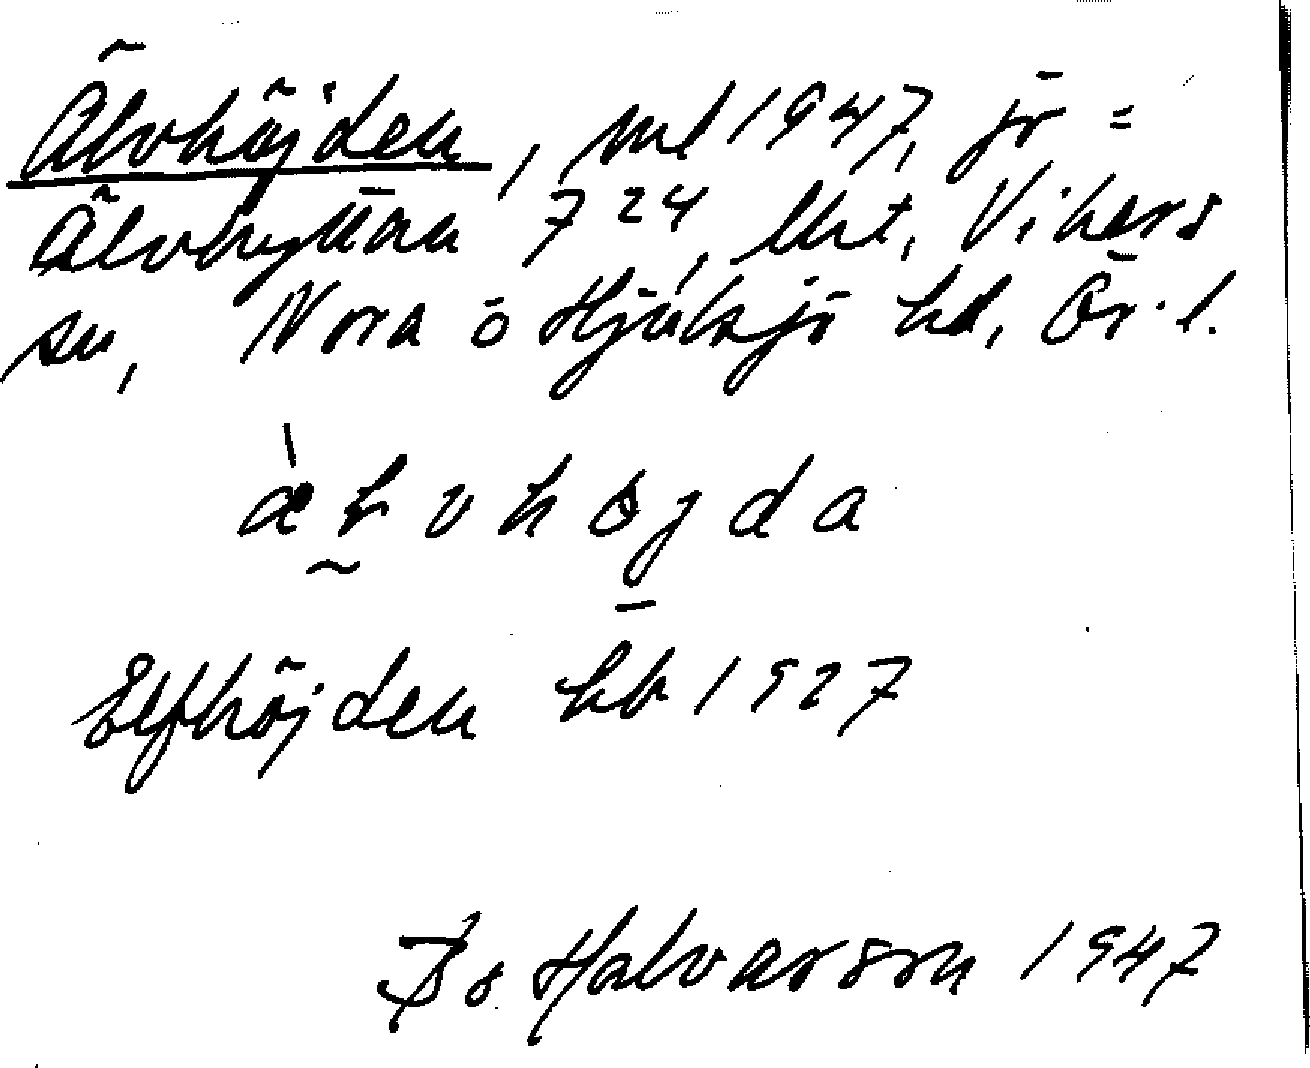 Älvhöjden, ml 1947, jr =
Älvhyttan 7 24, Urt, Vikers
sn, Nora o Hjulsjö hd, Ör. l.
æ̀ l v h ö j d a
Elfhöjden kb 1927
Bo Halvarson 1947